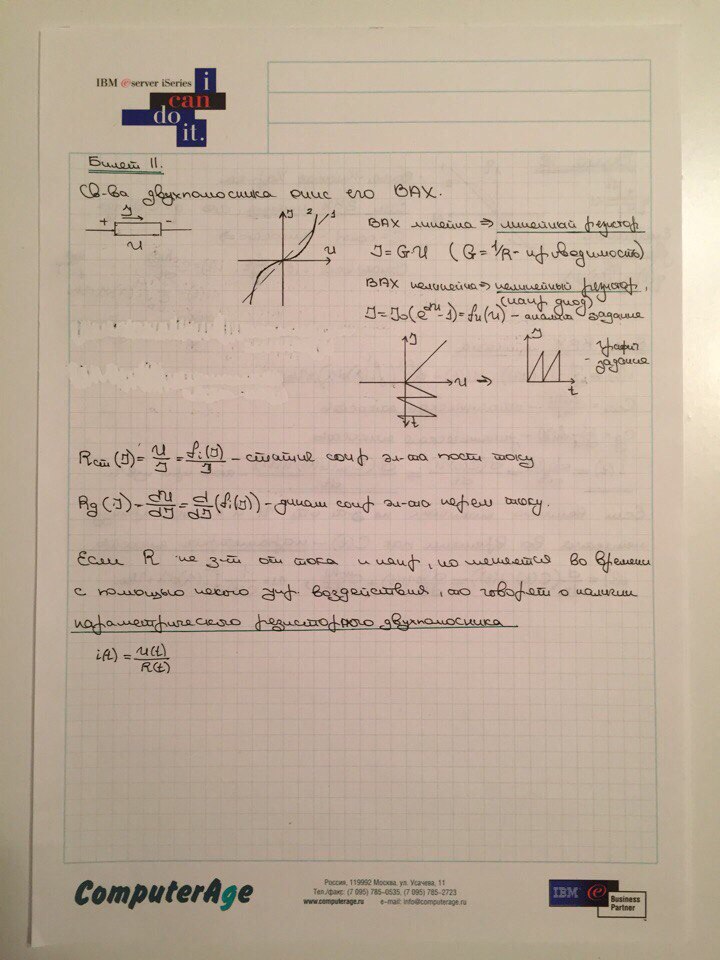 IBM @server iSeries
i
can
do
it.
Билет 11.
Св-ва двухполюсника опис его ВАХ.
+ J -
U
J 2 1
U
ВАХ линейна ⇒ линейный резистор
J = GU (G = 1/R - пр-водимость)
ВАХ нелинейна ⇒ нелинейный резистор,
(напр диод)
J = J₀(e^αU - 1) = fu(U) - аналит задание
J
U ⇒
t
J
t
- график
задание
Rст(J) = U/J = fi(J)/J - статич сопр эл-та пост току
Rg(J) - dU/dJ = d/dJ (fi(J)) - динам сопр эл-та перем току.
Если R не з-т от тока и напр, но меняется во времени
с помощью некого упр. воздействия, то говорят о налични
параметрического резисторного двухполюсника
i(t) = U(t)/R(t)
ComputerAge
Россия, 119992 Москва, ул. Усачева, 11
Тел./факс: (7 095) 785-0535, (7 095) 785-2723
www.computerage.ru e-mail: info@computerage.ru
IBM @
Business
Partner